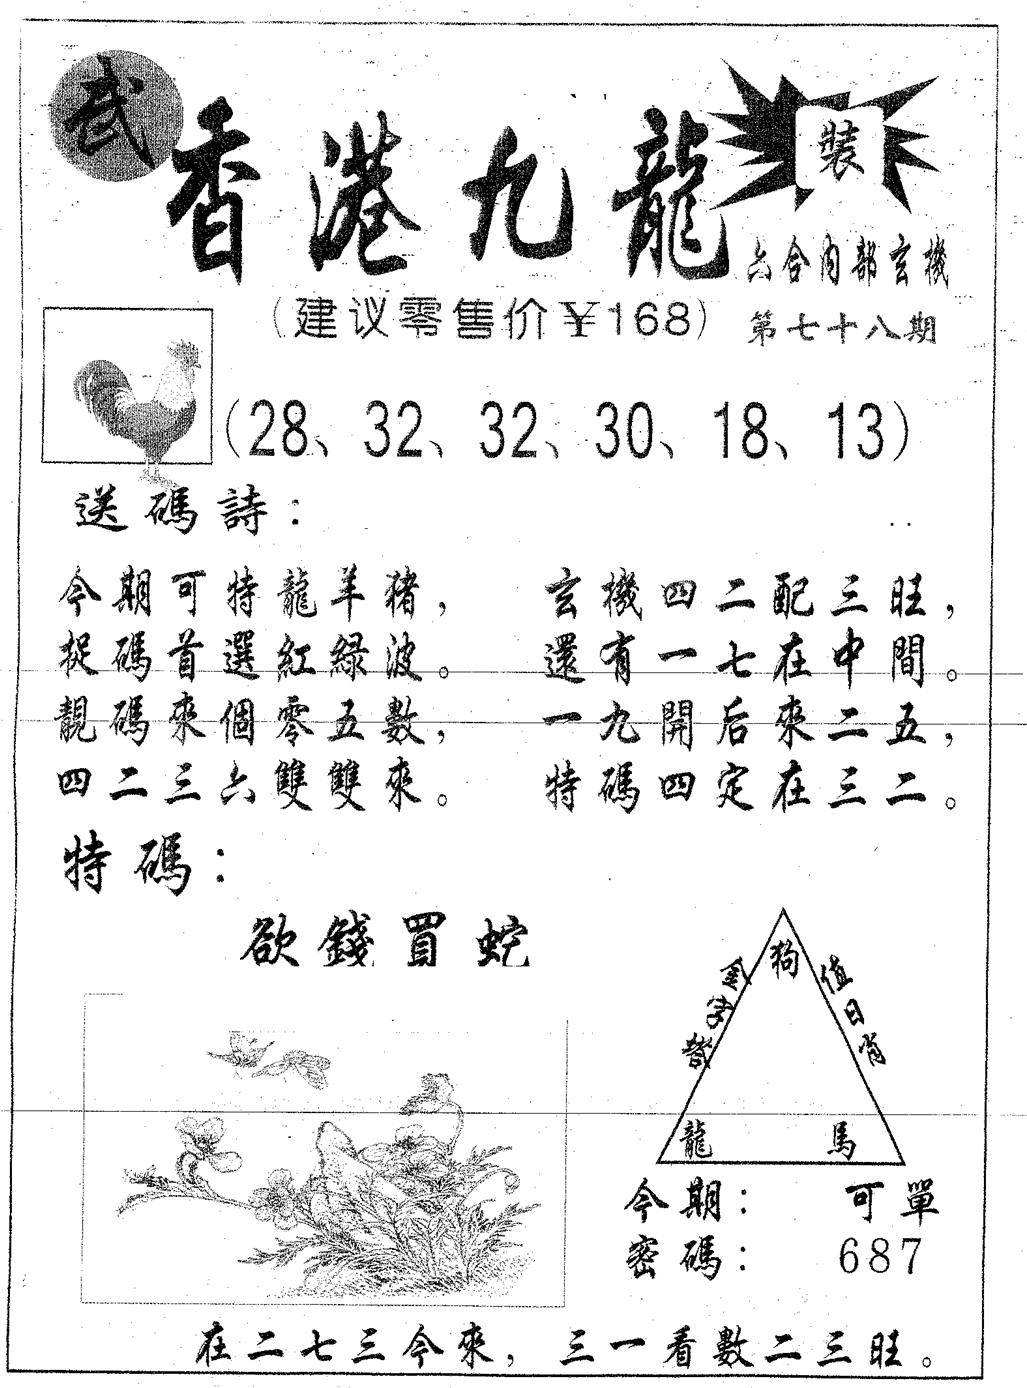 武
香港九龍
裝
六合內部玄機
（建议零售价￥168）
第七十八期
（28、32、32、30、18、13）
送碼詩：
今期可特龍羊豬，
捉碼首選紅綠波。
靚碼來個零五數，
四二三六雙雙來。
玄機四二配三旺，
還有一七在中間。
一九開后來二五，
特碼四定在三二。
特碼：
欲錢買蛇
金字塔
狗
值日肖
龍
馬
今期：可單
密碼：687
在二七三今來，三一看數二三旺。